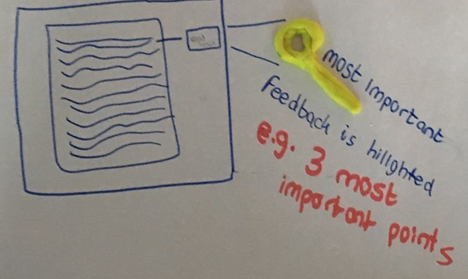 most important
feedback is hillghted
e.g. 3 most
important points